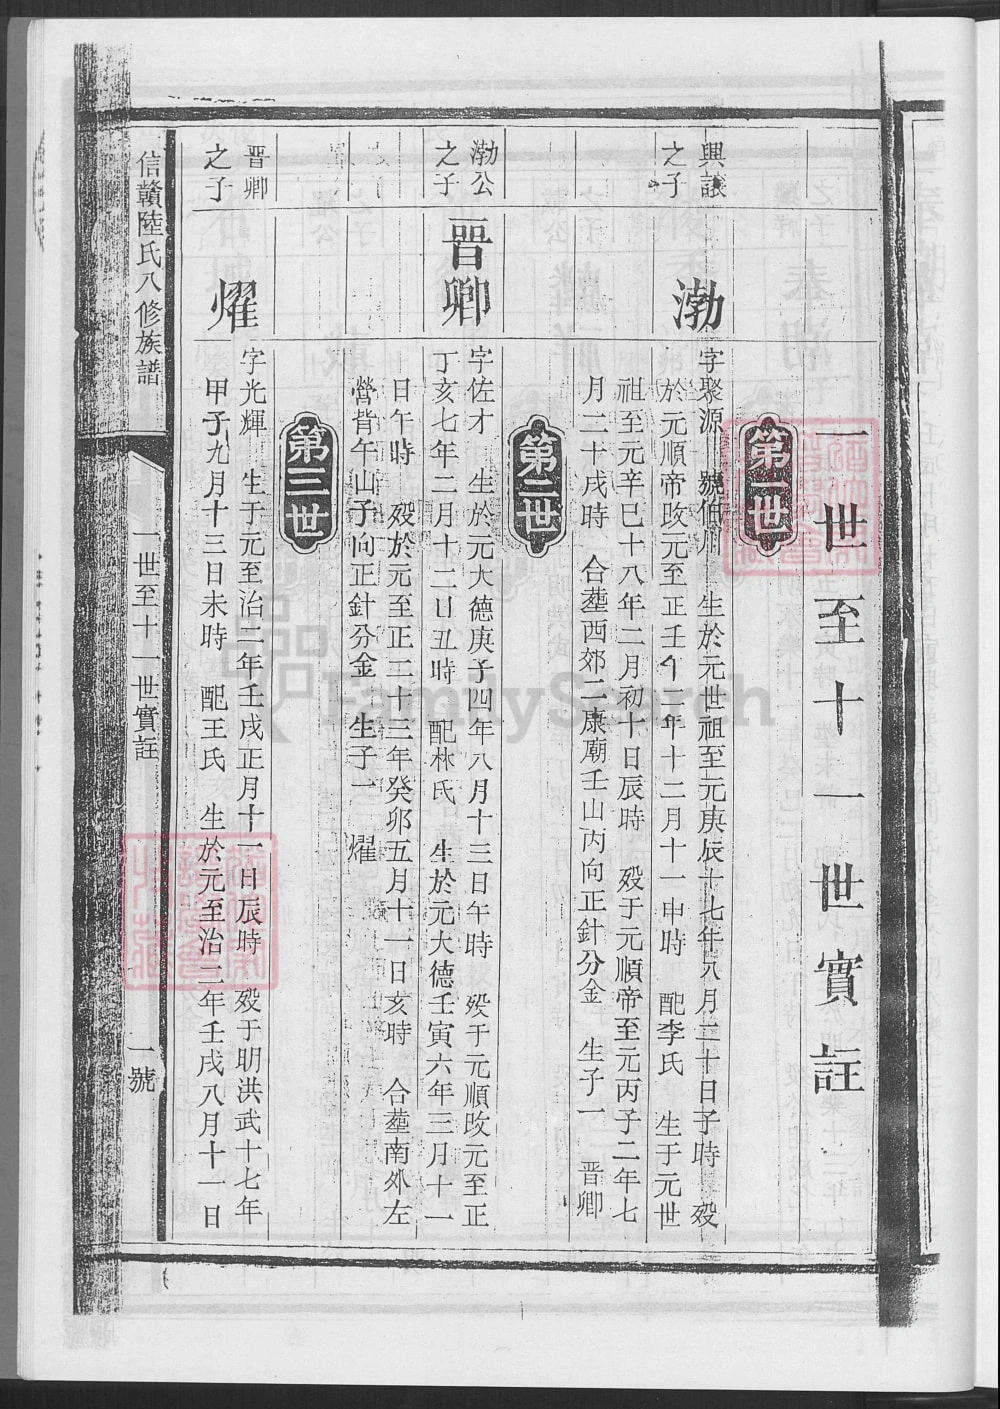 一世至十一世實註
第一世
興讓
之子
渤
字聚源 號伯川 生於元世祖至元庚辰十七年八月二十日子時 歿
於元順帝改元至正壬午二年十二月十一申時 配李氏 生于元世
祖至元辛巳十八年二月初十日辰時 歿于元順帝至元丙子二年七
月二十戌時 合塟西郊二康廟壬山丙向正針分金 生子一 晋卿
第二世
渤公
之子
晋卿
字佐才 生於元大德庚子四年八月十三日午時 歿于元順改元至正
丁亥七年二月十二日丑時 配林氏 生於元大德壬寅六年三月十一
日午時 歿於元至正二十三年癸卯五月十一日亥時 合塟南外左
營背午山子向正針分金 生子一 燿
第三世
晋卿
之子
燿
字光輝 生于元至治二年壬戌正月十一日辰時 歿于明洪武十七年
甲子九月十三日未時 配王氏 生於元至治二年壬戌八月十一日
信贛陸氏八修族譜
一世至十一世實註
一號
FamilySearch